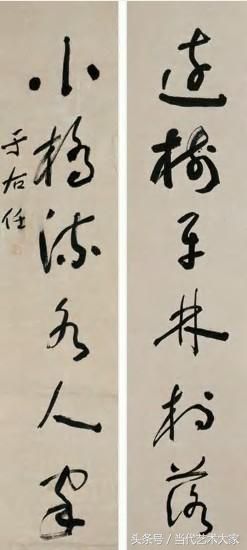 遠樹平林村落
小橋流水人家
于右任
头条号 / 当代艺术大家